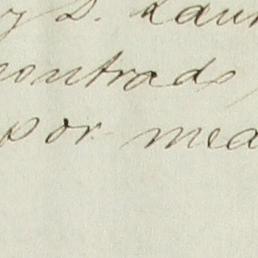 y S. Laur
contrads
por med